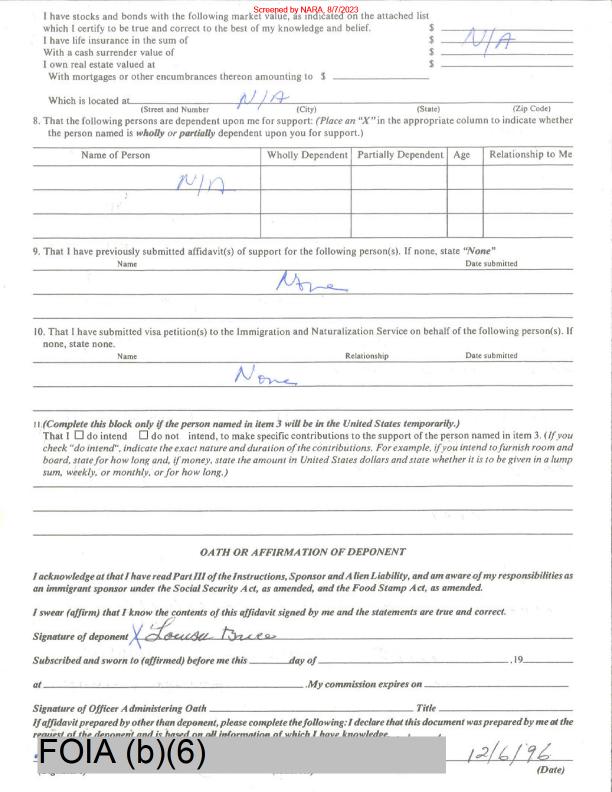 Screened by NARA, 8/7/2023
I have stocks and bonds with the following market value, as indicated on the attached list
which I certify to be true and correct to the best of my knowledge and belief. $
I have life insurance in the sum of $ N/A
With a cash surrender value of $
I own real estate valued at $
With mortgages or other encumbrances thereon amounting to $
Which is located at N/A
(Street and Number) (City) (State) (Zip Code)
8. That the following persons are dependent upon me for support: (Place an "X" in the appropriate column to indicate whether
the person named is wholly or partially dependent upon you for support.)
Name of Person Wholly Dependent Partially Dependent Age Relationship to Me
N/A
9. That I have previously submitted affidavit(s) of support for the following person(s). If none, state "None"
Name Date submitted
None
10. That I have submitted visa petition(s) to the Immigration and Naturalization Service on behalf of the following person(s). If
none, state none.
Name Relationship Date submitted
None
11.(Complete this block only if the person named in item 3 will be in the United States temporarily.)
That I ☐ do intend ☐ do not intend, to make specific contributions to the support of the person named in item 3. (If you
check "do intend", indicate the exact nature and duration of the contributions. For example, if you intend to furnish room and
board, state for how long and, if money, state the amount in United States dollars and state whether it is to be given in a lump
sum, weekly, or monthly, or for how long.)
OATH OR AFFIRMATION OF DEPONENT
I acknowledge at that I have read Part III of the Instructions, Sponsor and Alien Liability, and am aware of my responsibilities as
an immigrant sponsor under the Social Security Act, as amended, and the Food Stamp Act, as amended.
I swear (affirm) that I know the contents of this affidavit signed by me and the statements are true and correct.
Signature of deponent X Louisa
Subscribed and sworn to (affirmed) before me this day of ,19
at .My commission expires on
Signature of Officer Administering Oath Title
If affidavit prepared by other than deponent, please complete the following: I declare that this document was prepared by me at the
request of the deponent and is based on all information of which I have knowledge.
FOIA (b)(6) 12/6/96
(Date)